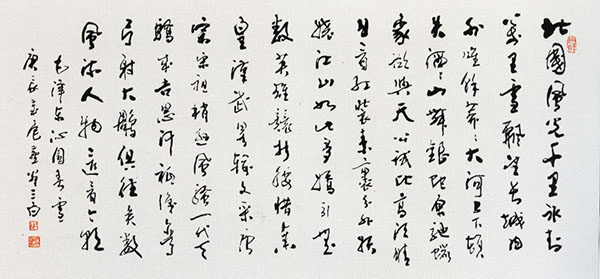 北國風光千里冰封
萬里雪飄望長城内
外惟餘莽々大河上下頓
失滔々山舞銀蛇原馳蠟
象欲與天公試比高須晴
日看紅裝素裹分外妖
嬈江山如此多嬌引無
數英雄競折腰惜秦
皇漢武略輸文采唐
宗宋祖稍遜風騷一代天
驕成吉思汗祗識彎
弓射大鵰俱往矣數
風流人物還看今朝
毛澤東沁園春雪
庚辰